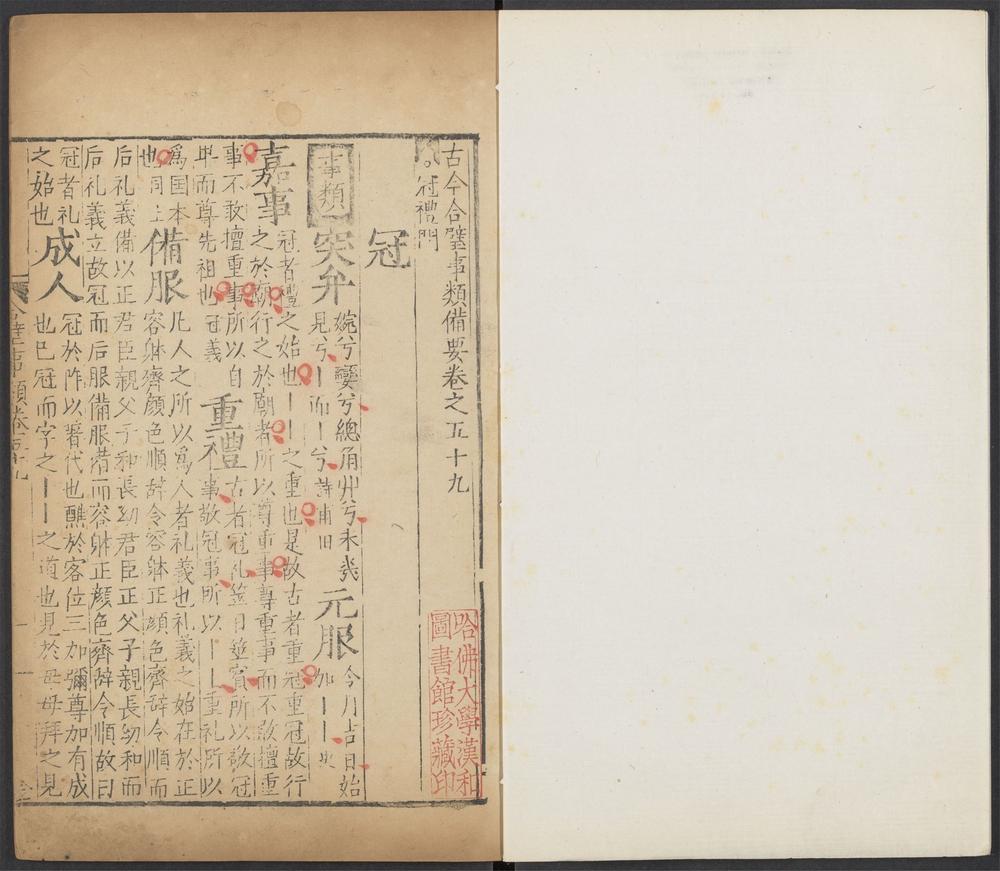 古今合璧事類備要卷之五十九
冠禮門
冠
事類
突弁
婉兮孌兮總角丱兮未幾
見兮丨而丨兮詩甫田
元服
今月吉日始
加丨丨
嘉事
冠者禮之始也丨丨之重也是故古者重冠重冠故行
之於廟行之於廟者所以尊重事尊重事而不敢擅重
事不敢擅重事所以自
卑而尊先祖也冠義
重禮
古者冠礼筮日筮賓所以敬冠
事敬冠事所以丨丨重礼所以
爲国本
也同上
備服
凡人之所以爲人者礼義也礼義之始在於正
容躰齊顔色順辞令容躰正顔色齊辞令順而
后礼義備以正君臣親父子和長幼君臣正父子親長幼和而
后礼義立故冠而后服備服備而容躰正顔色齊辞令順故曰
冠者礼
之始也
成人
冠於阼以著代也醮於客位三加彌尊加有成
也已冠而字之丨丨之道也見於母母拜之見
哈佛大學漢和
圖書館珍藏印